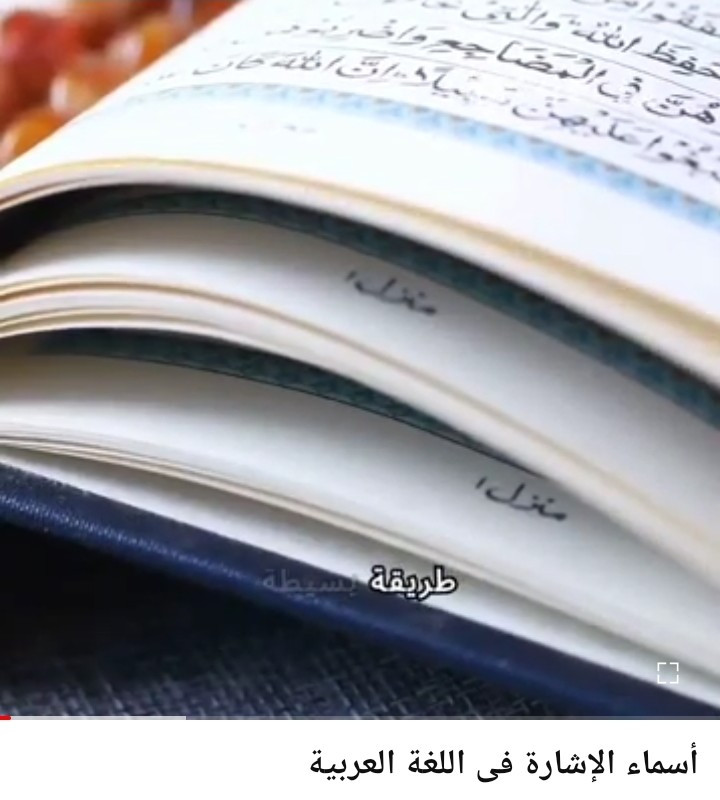 حَفِظَ اللهُ وَالّٰتِیْ
هُنَّ فِی الْمَضَاجِعِ وَاضْرِبُوْهُنَّ
عَلَیْهِنَّ سَبِیْلًا اِنَّ اللهَ كَانَ
منزل ۱
منزل ۱
طريقة بسيطة
أسماء الإشارة فى اللغة العربية